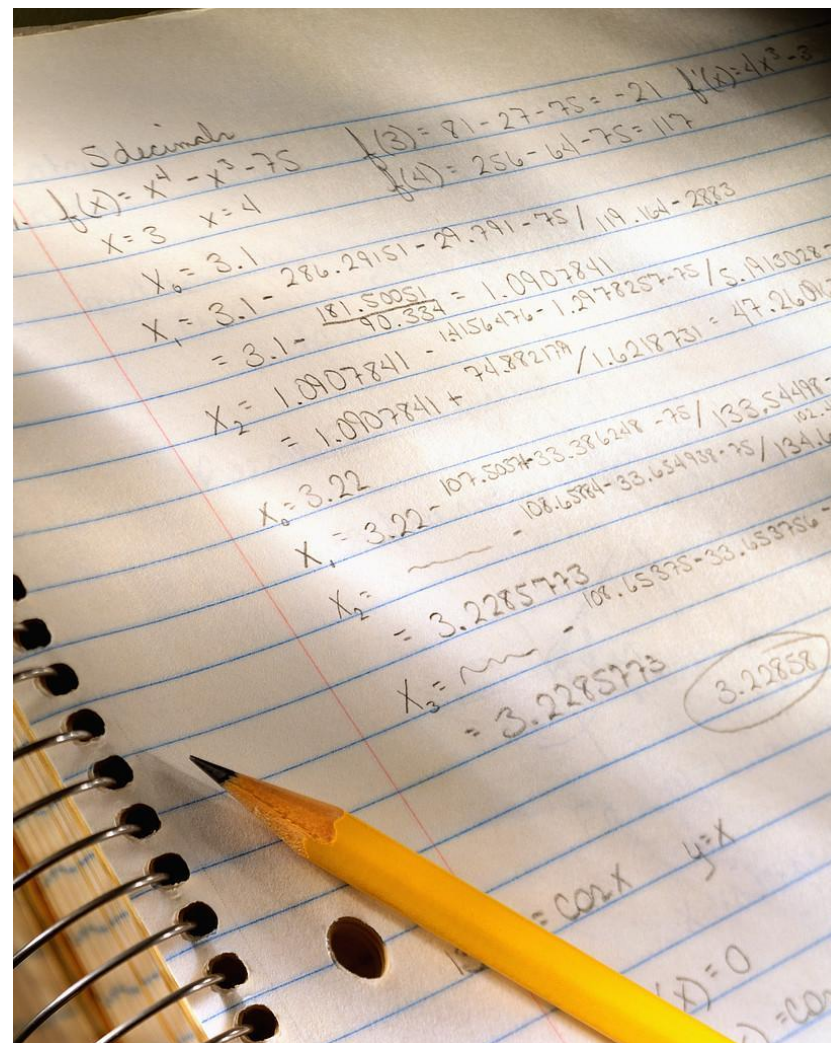 5 decimals
1. f(x) = x⁴ - x³ - 75 f(3) = 81 - 27 - 75 = -21 f'(x) = 4x³ - 3
x = 3 x = 4 f(4) = 256 - 64 - 75 = 117
x₀ = 3.1
x₁ = 3.1 - 286.29151 - 29.791 - 75 / 119.164 - 28.83
= 3.1 - 181.50051 / 90.334 = 1.0907841
x₂ = 1.0907841 - 1.4156476 - 1.2978257 - 75 / 5.1913028 -
= 1.0907841 + 74.882179 / 1.6218731 = 47.260
x₀ = 3.22
x₁ = 3.22 - 107.5037 - 33.386248 - 75 / 133.54498 -
x₂ = - 108.65884 - 33.654938 - 75 / 134.6
= 3.2285773
x₃ = - 108.65375 - 33.653756 -
= 3.2285773 3.22858
= cos x y = x
(x) = 0
) = co